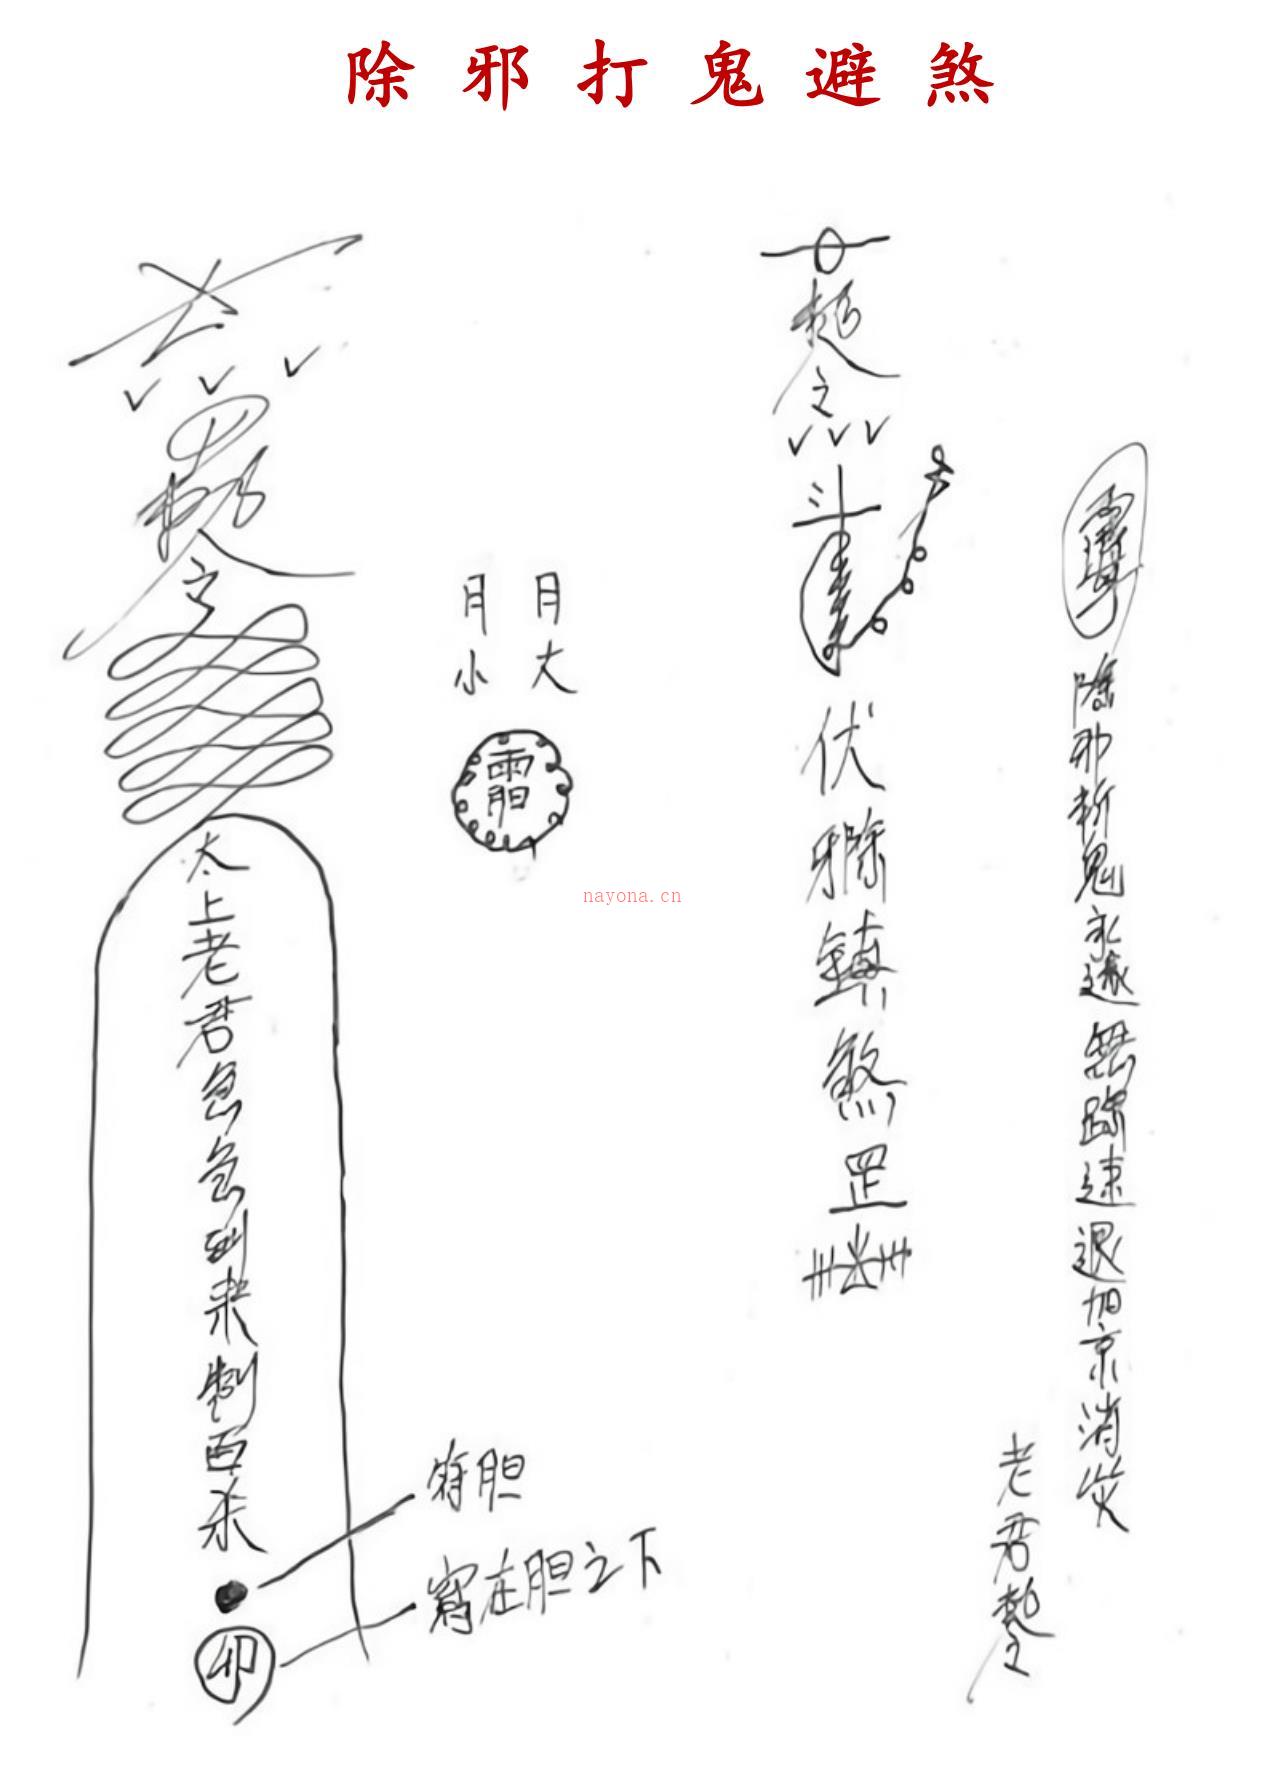 除邪打鬼避煞
勅令
太上老君急急到来制百杀
印
符胆
寫在胆之下
月小
月大
勅令
斗
伏邪除鎮煞罡
除邪斬鬼永遠無踪速退
消災
老君勅令
nayona.cn